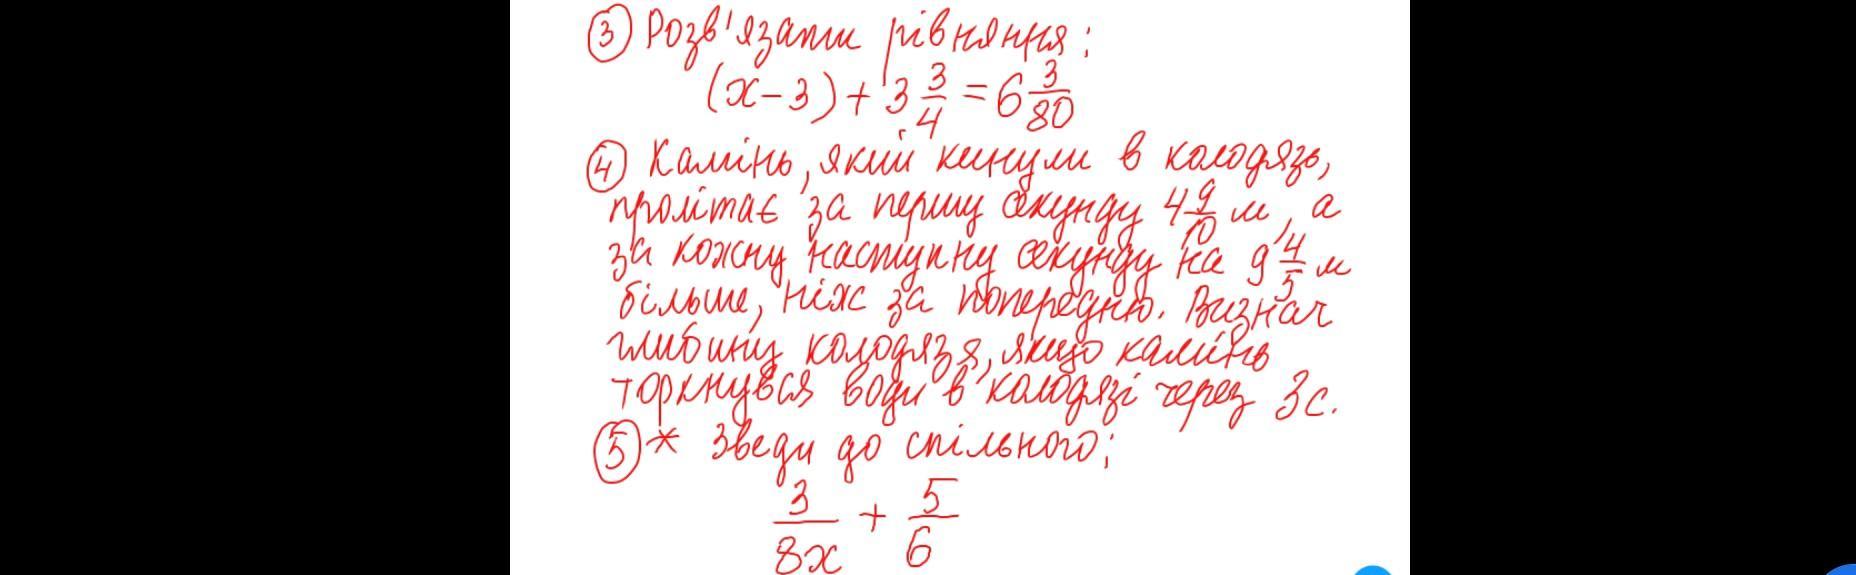 ③ Розв'язати рівняння:
(x-3)+3 3/4=6 3/80
④ Камінь, який кинули в колодязь,
пролітає за першу секунду 4 9/10 м, а
за кожну наступну секунду на 9 4/5 м
більше, ніж за попередню. Визнач
глибину колодязя, якщо камінь
торкнувся води в колодязі через 3с.
⑤* Зведи до спільного:
3/8x + 5/6